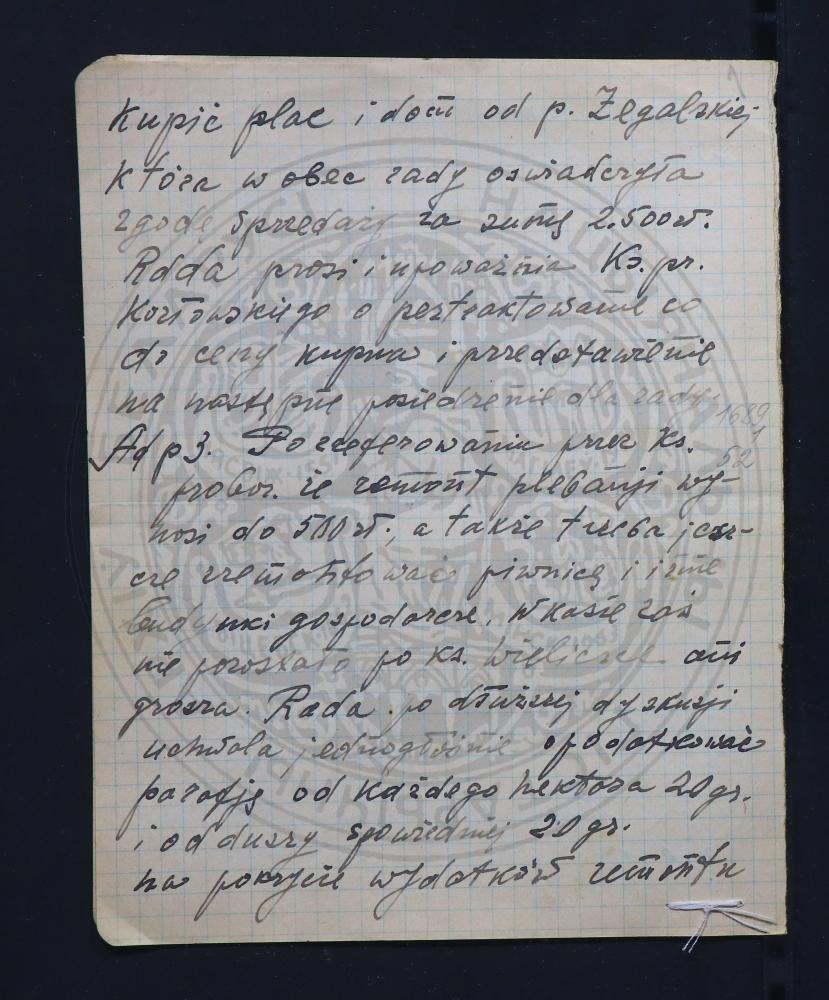 Kupić plac i dom od p. Żegalskiej
która w obec rady oswiadczyła
zgodę sprzedaży za sumę 2.500 zł.
Rada prosi i upoważnia Ks. pr.
Kozłowskiego o pertraktowanie co
do ceny kupna i przedstawienie
na następne posiedzenie dla rady.
Ad p 3. Po zreferowaniu przez Ks.
probos. że remont plebanji wy-
nosi do 500 zł., a także trzeba jesz-
cze zremontować piwnicę i inne
budynki gospodarcze, W kasie zaś
nie pozostało po ks. ani
grosza. Rada po dłuższej dyskusji
uchwala jednogłośnie opodatkować
parafję od każdego hektara 20 gr.
i od duszy spowiedniej 20 gr.
na pokrycie wydatków remontu